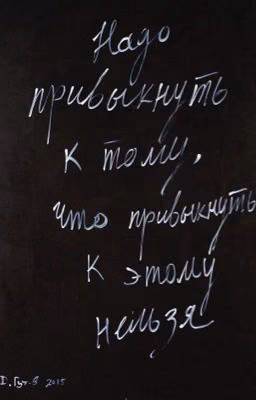 Надо
привыкнуть
к тому,
что привыкнуть
к этому
нельзя
Д. Гут-в 2015